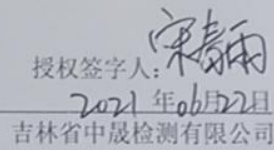 授权签字人：宋春雨
2021年06月22日
吉林省中晟检测有限公司